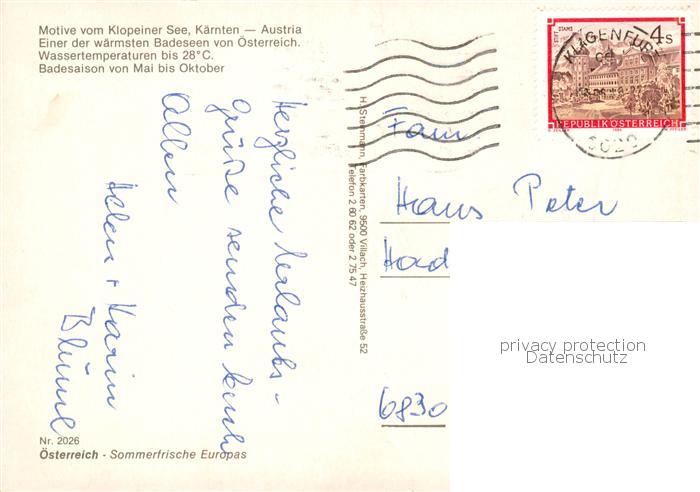 Motive vom Klopeiner See, Kärnten — Austria
Einer der wärmsten Badeseen von Österreich.
Wassertemperaturen bis 28°C.
Badesaison von Mai bis Oktober
Herzliche Urlaubs-
Grüße senden Euch
Allen
Helen + Karin
Blüml
Nr. 2026
Österreich - Sommerfrische Europas
H. Steinmann, Farbkarten, 9500 Villach, Heizhausstraße 52
Telefon 2 60 62 oder 2 75 47
STIFT STAMS
4s
REPUBLIK ÖSTERREICH
KLAGENFURT
9020
Fam.
Hans Peter
6830
privacy protection
Datenschutz